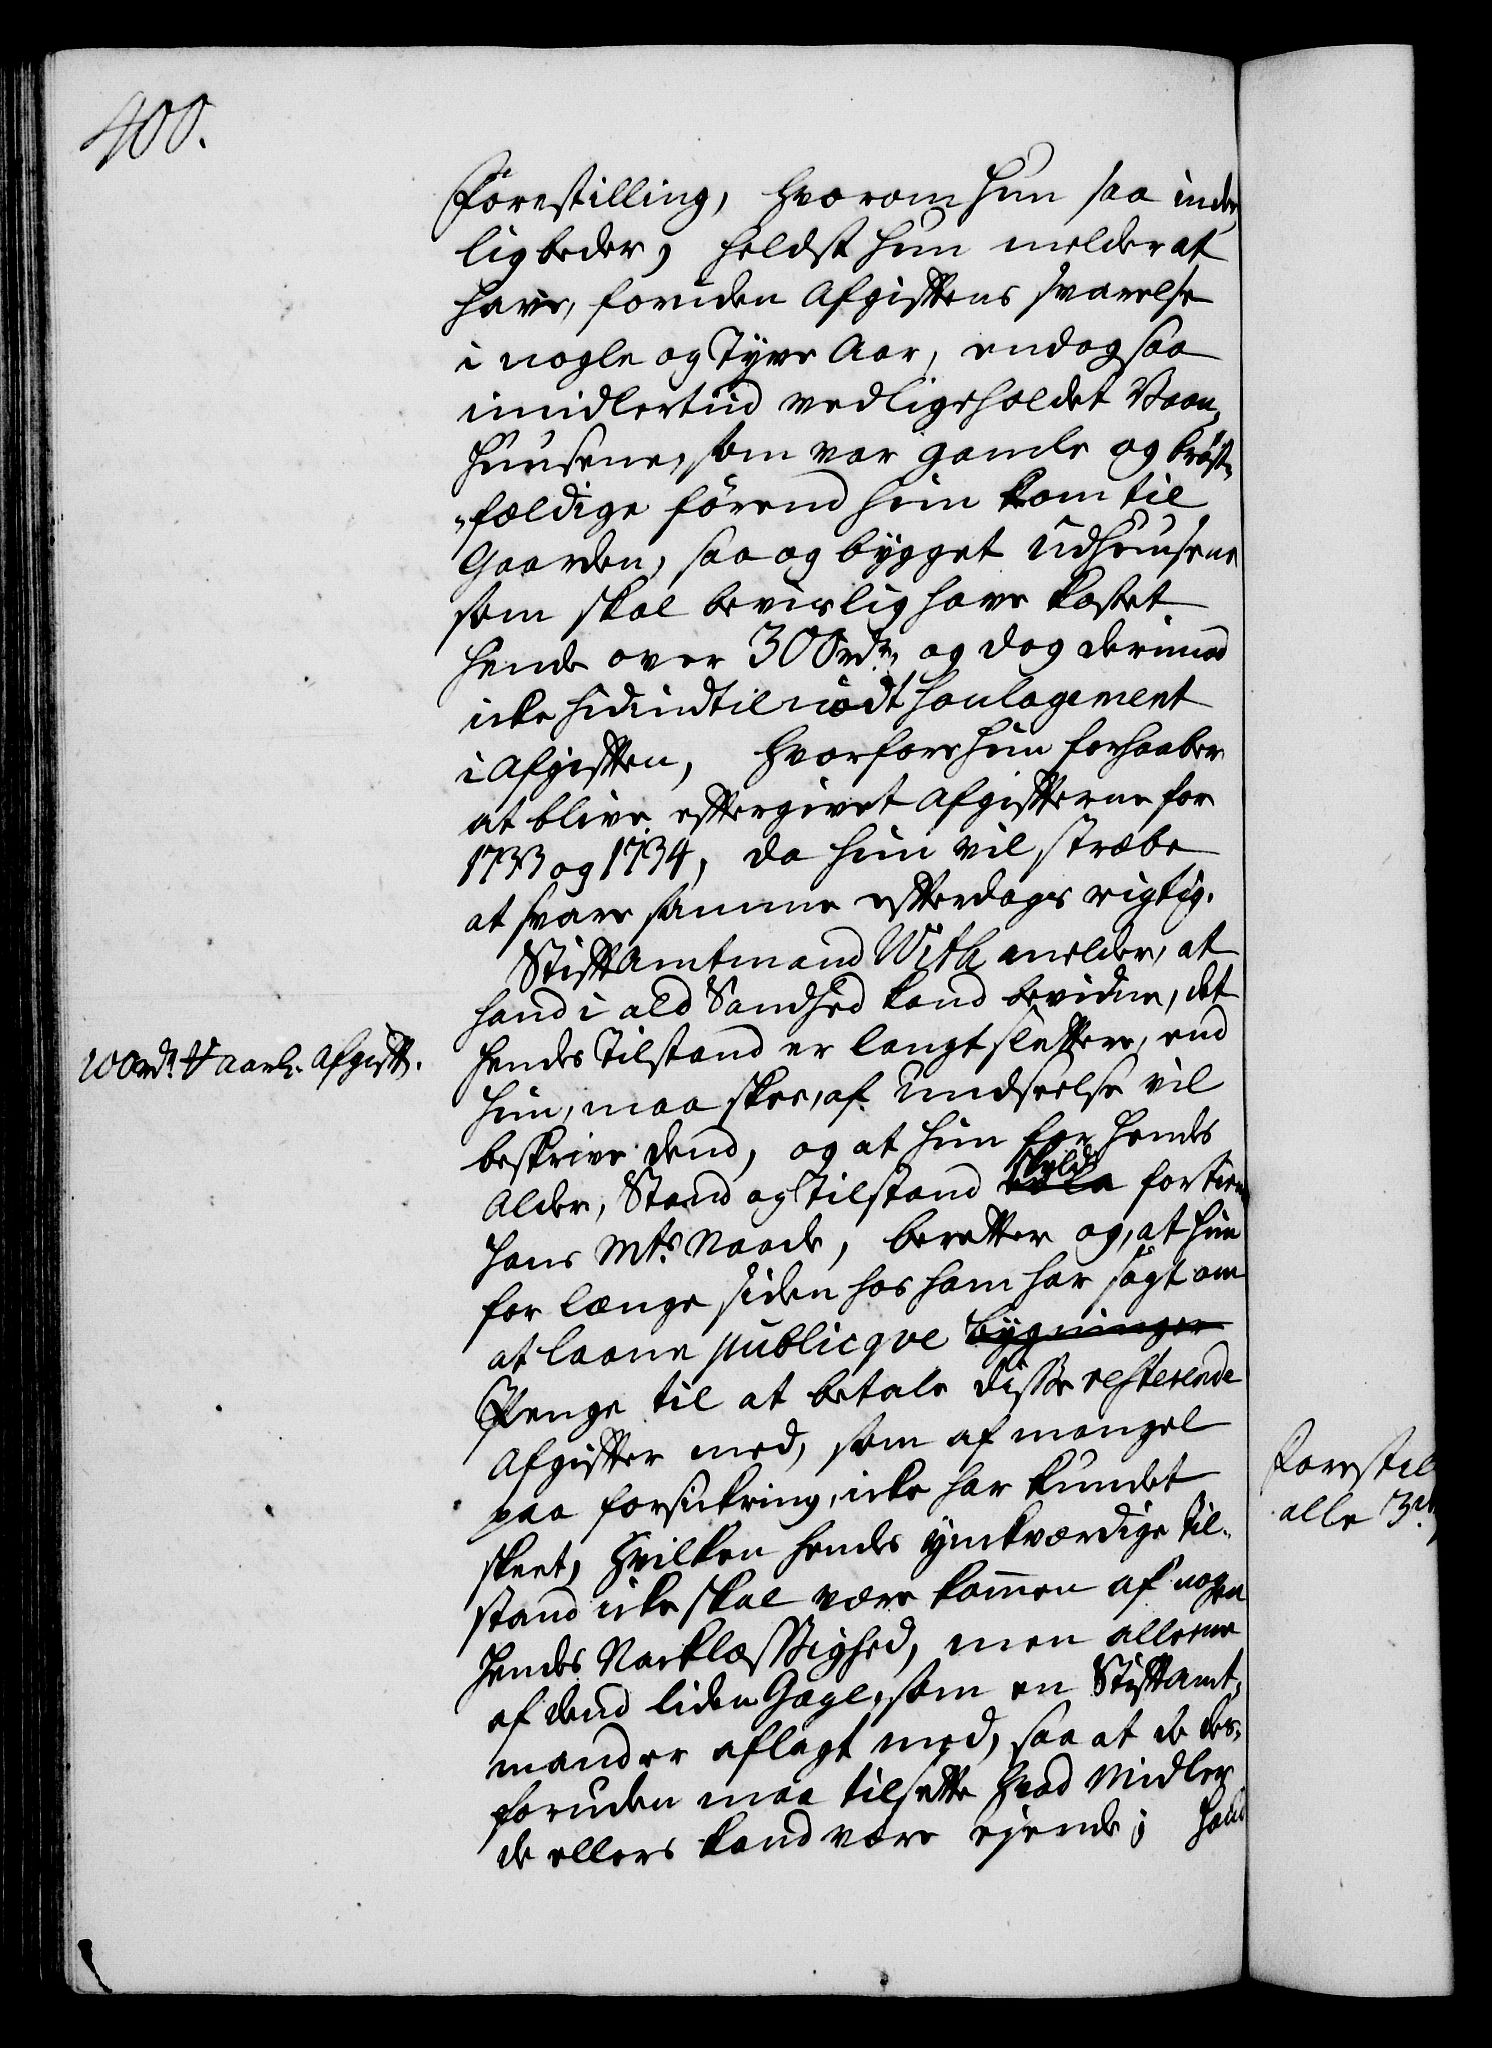 400.
Forestilling, hvorom hun saa inder,
lig beder, heldst hun melder at
have, foruden Afgiftens svarelse
i nogle og Tyve Aar, endog saa
imidlertiid vedligeholdet Vaan,
huusene, som var gamle og bröst,
,fældige förend hun kom til
Gaarden, saa og bygget udhuusene
som skal beviislig have kostet
hende over 300 rdr, og dog derimod
icke hidindtil nödt
i Afgiften, hvorfore hun forhaaber
at blive eftergivet Afgifterne for
1733 og 1734, da hun vil stræbe
at svare samme efterdags rigtig.
Stiftamtmand With melder, at
hand i ald Sandhed kand bevidne, det
200 rdr aarl. Afgift.
hendes Tilstand er langt slettere, end
hun, maa skee, af Undseelse vil
beskrive dend, og at hun for hendes
Alder, Stand og Tilstand skyld fortien
hans Mts Naade, beretter og, at hun
for længe siden hos ham har sögt om
at laane publicqve bygninger
Penge til at betale disse resterende
Afgifter med, som af mangel
paa forsickring, icke har kundet
skeet, hvilken hendes ymkværdige Til,
stand icke skal være kommen af nogen
hendes Narklæssighed, men alleene
af dend liden Gage, som en Stiftamt,
mand er aflagt med, saa at de des,
foruden maa tilsette hvad Midler
de ellers kand være ejende; hand
Forestil
alle 3